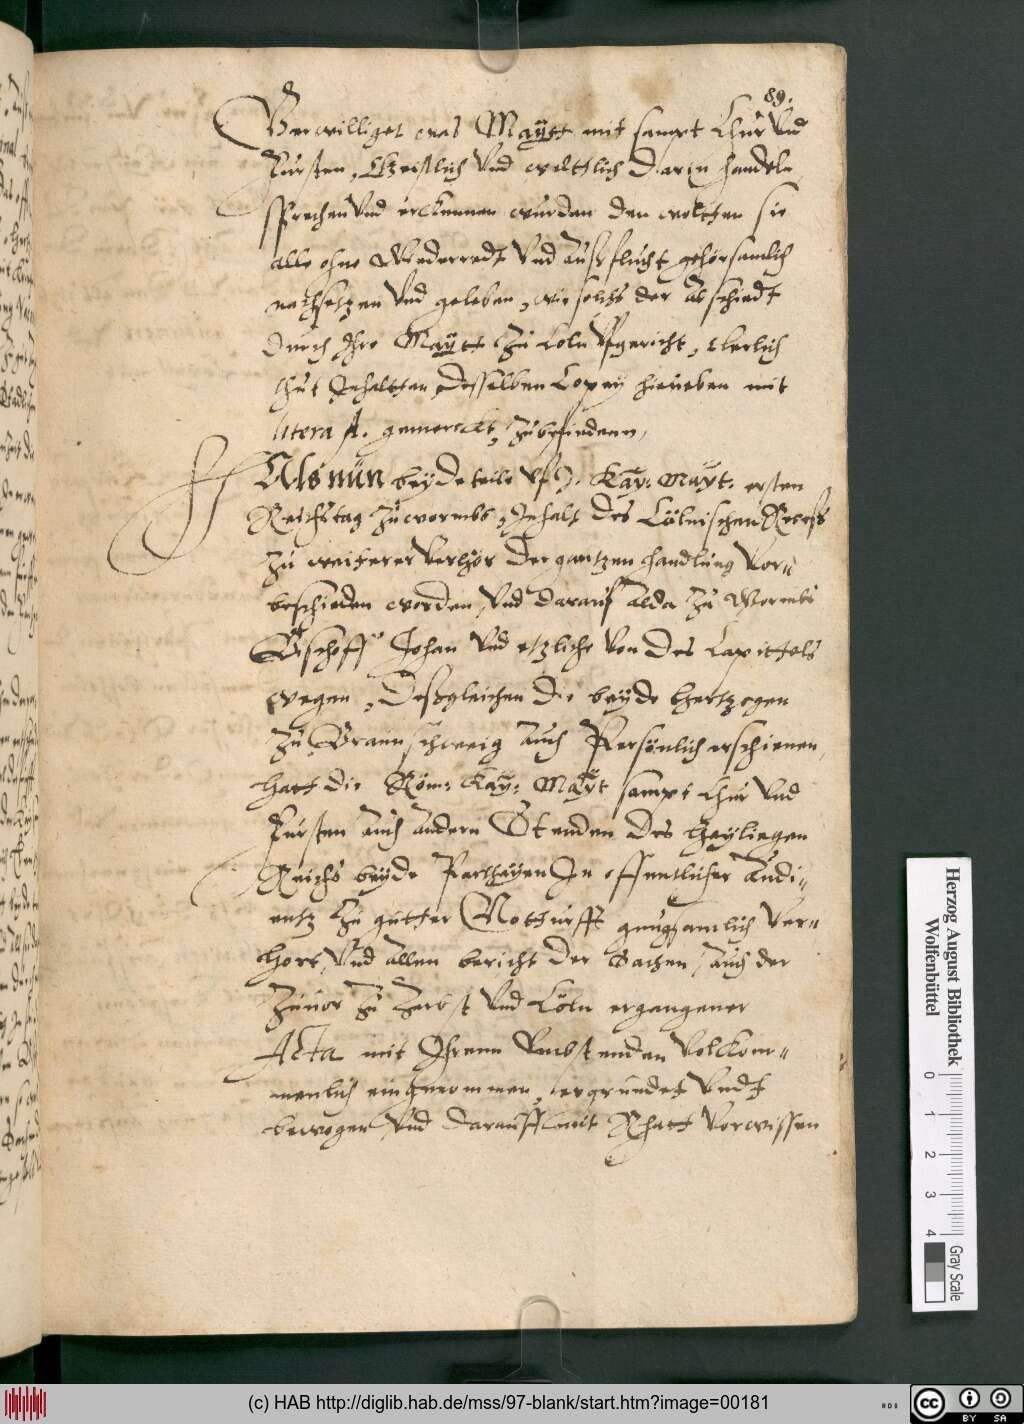 89.
Verwilliget was Maÿtt mit sampt Chur vnd
Fursten, Geistlich vnd weltlich darin handeln,
sprechen vnd erckennen wurden dem wolthen sie
alle ohne Wederredt vnd Außflucht gehörsamlich
nachsetzen vnd geleben, wie solchs der Abschiedt
durch Ihre Maÿtt zu Coln vfgericht, clerlich
thut Inhalten, desselben Copey hieneben mit
litera A. gemerckt, zubefindenn,
Als nun beyde teile vf J. Kaÿ: Maÿt: ersten
Reichstag zu wormbs, Inhalt des Cölnischen Recess
zu weiterer verhör der gantzen handlung vor-
beschieden worden, vnd darauf alda zu Wormbs
Bischoff Johan vnd etzliche von des Capittels
wegen, Deßgleichen die beyde Hertzogen
zu Braunschweig auch Persönlich erschienen,
hatt die Röm: Kaÿ: Maÿt sampt Chur vnd
Fursten auch andern Stenden des heyligen
Reichs beyde Partheyen In offentlicher Audi-
entz zu gutter Notturfft gnugsamlich ver-
hort, Vnd allen bericht der Sachen, auch der
zuuor zu Zerbst vnd Cöln ergangener
Acta mit Ihrenn Vmbstenden volckom-
menlich eingenommen, ergründet vndt
bewogen, vnd darauff mit Rhatt vorwissen
Herzog August Bibliothek
Wolfenbüttel
0 1 2 3 4
Gray Scale
(c) HAB http://diglib.hab.de/mss/97-blank/start.htm?image=00181
cc BY SA